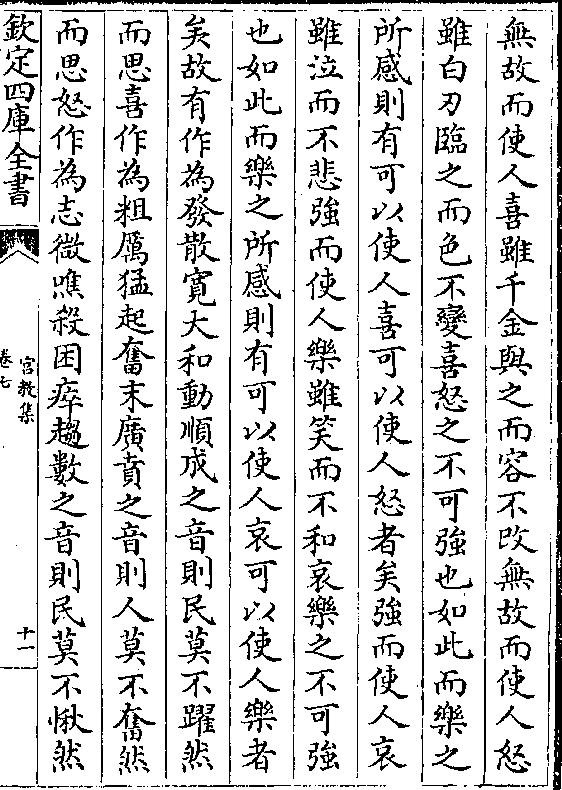 無故而使人喜雖千金與之而容不改無故而使人怒
雖白刃臨之而色不變喜怒之不可強也如此而樂之
所感則有可以使人喜可以使人怒者矣強而使人哀
雖泣而不悲強而使人樂雖笑而不和哀樂之不可強
也如此而樂之所感則有可以使人哀可以使人樂者
矣故有作為發散寛大和動順成之音則民莫不躍然
而思喜作為粗厲猛起奮末廣賁之音則人莫不奮然
而思怒作為志微噍殺困瘁趨數之音則民莫不愀然
欽定四庫全書
宮教集
卷七
十一